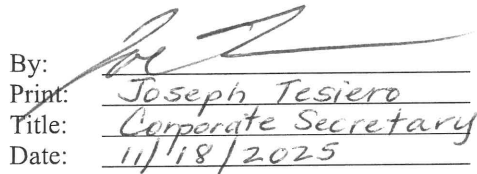 By: Joe T
Print: Joseph Tesiero
Title: Corporate Secretary
Date: 11/18/2025